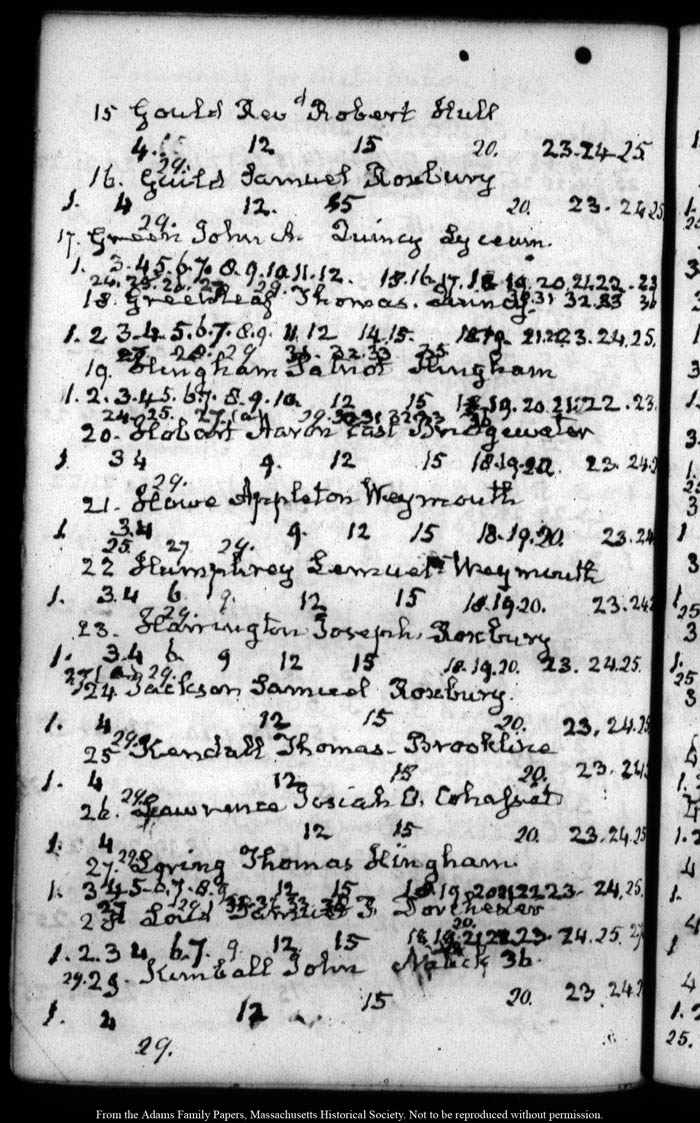 15 Gould Rev^d Robert Hull
4. 12 15 20. 23-24-25.
29.
16. Guild Samuel Roxbury
1. 4 12. 15 20. 23. 24 25
29.
17. Green John A. Quincy Lyceum.
1. 3.4 5.6.7. 8.9.10.11.12. 17. 20.21.22.23
24.25. 29.
18. Greenleaf Thomas. Quincy. 31 32.33
1. 2 3.4. 5.6.7. 8.9. 11.12 14.15. 18.19. 21.22.23. 24.25.
28. 29 32.33 35
19. Hingham Patriot Hingham
1.2.3.4.5.6.7. 8.9.10. 12 15 18.19.20.21.22.23.
24.25. 27 29. 36
20. Hobart Aaron East Bridgewater
1. 3 4 9. 12 15 18.19.20. 23 24.2
29.
21. Howe Appleton Weymouth
1. 3.4 9. 12 15 18.19.20. 23.24
25. 27 29.
22 Humphrey Lemuel Weymouth
1. 3.4 6. 9. 12 15 18.19.20. 23.24
29.
23. Harrington Joseph. Roxbury
1. 3.4 6 9 12 15 18.19.20. 23. 24.25.
29.
24 Jackson Samuel Roxbury.
1. 4 12 15 20. 23. 24.25
29.
25 Kendall Thomas. Brookline
1. 4 12 15 20. 23.24
29.
26. Lawrence Josiah O. Cohasset
1. 4 12 15 20. 23.24.25
29.
27. Loring Thomas Hingham.
1. 3.4.5.6.7.8.9 12 15 18.19.20.21.22.23. 24.25.
27
28 3. Dorchester
20.
1.2.3 4 6.7. 9. 12. 15 18.19.21.22.23. 24.25.
29.29. Kimball John 36.
1. 4 12 15 20. 23 24.2
29.
From the Adams Family Papers, Massachusetts Historical Society. Not to be reproduced without permission.